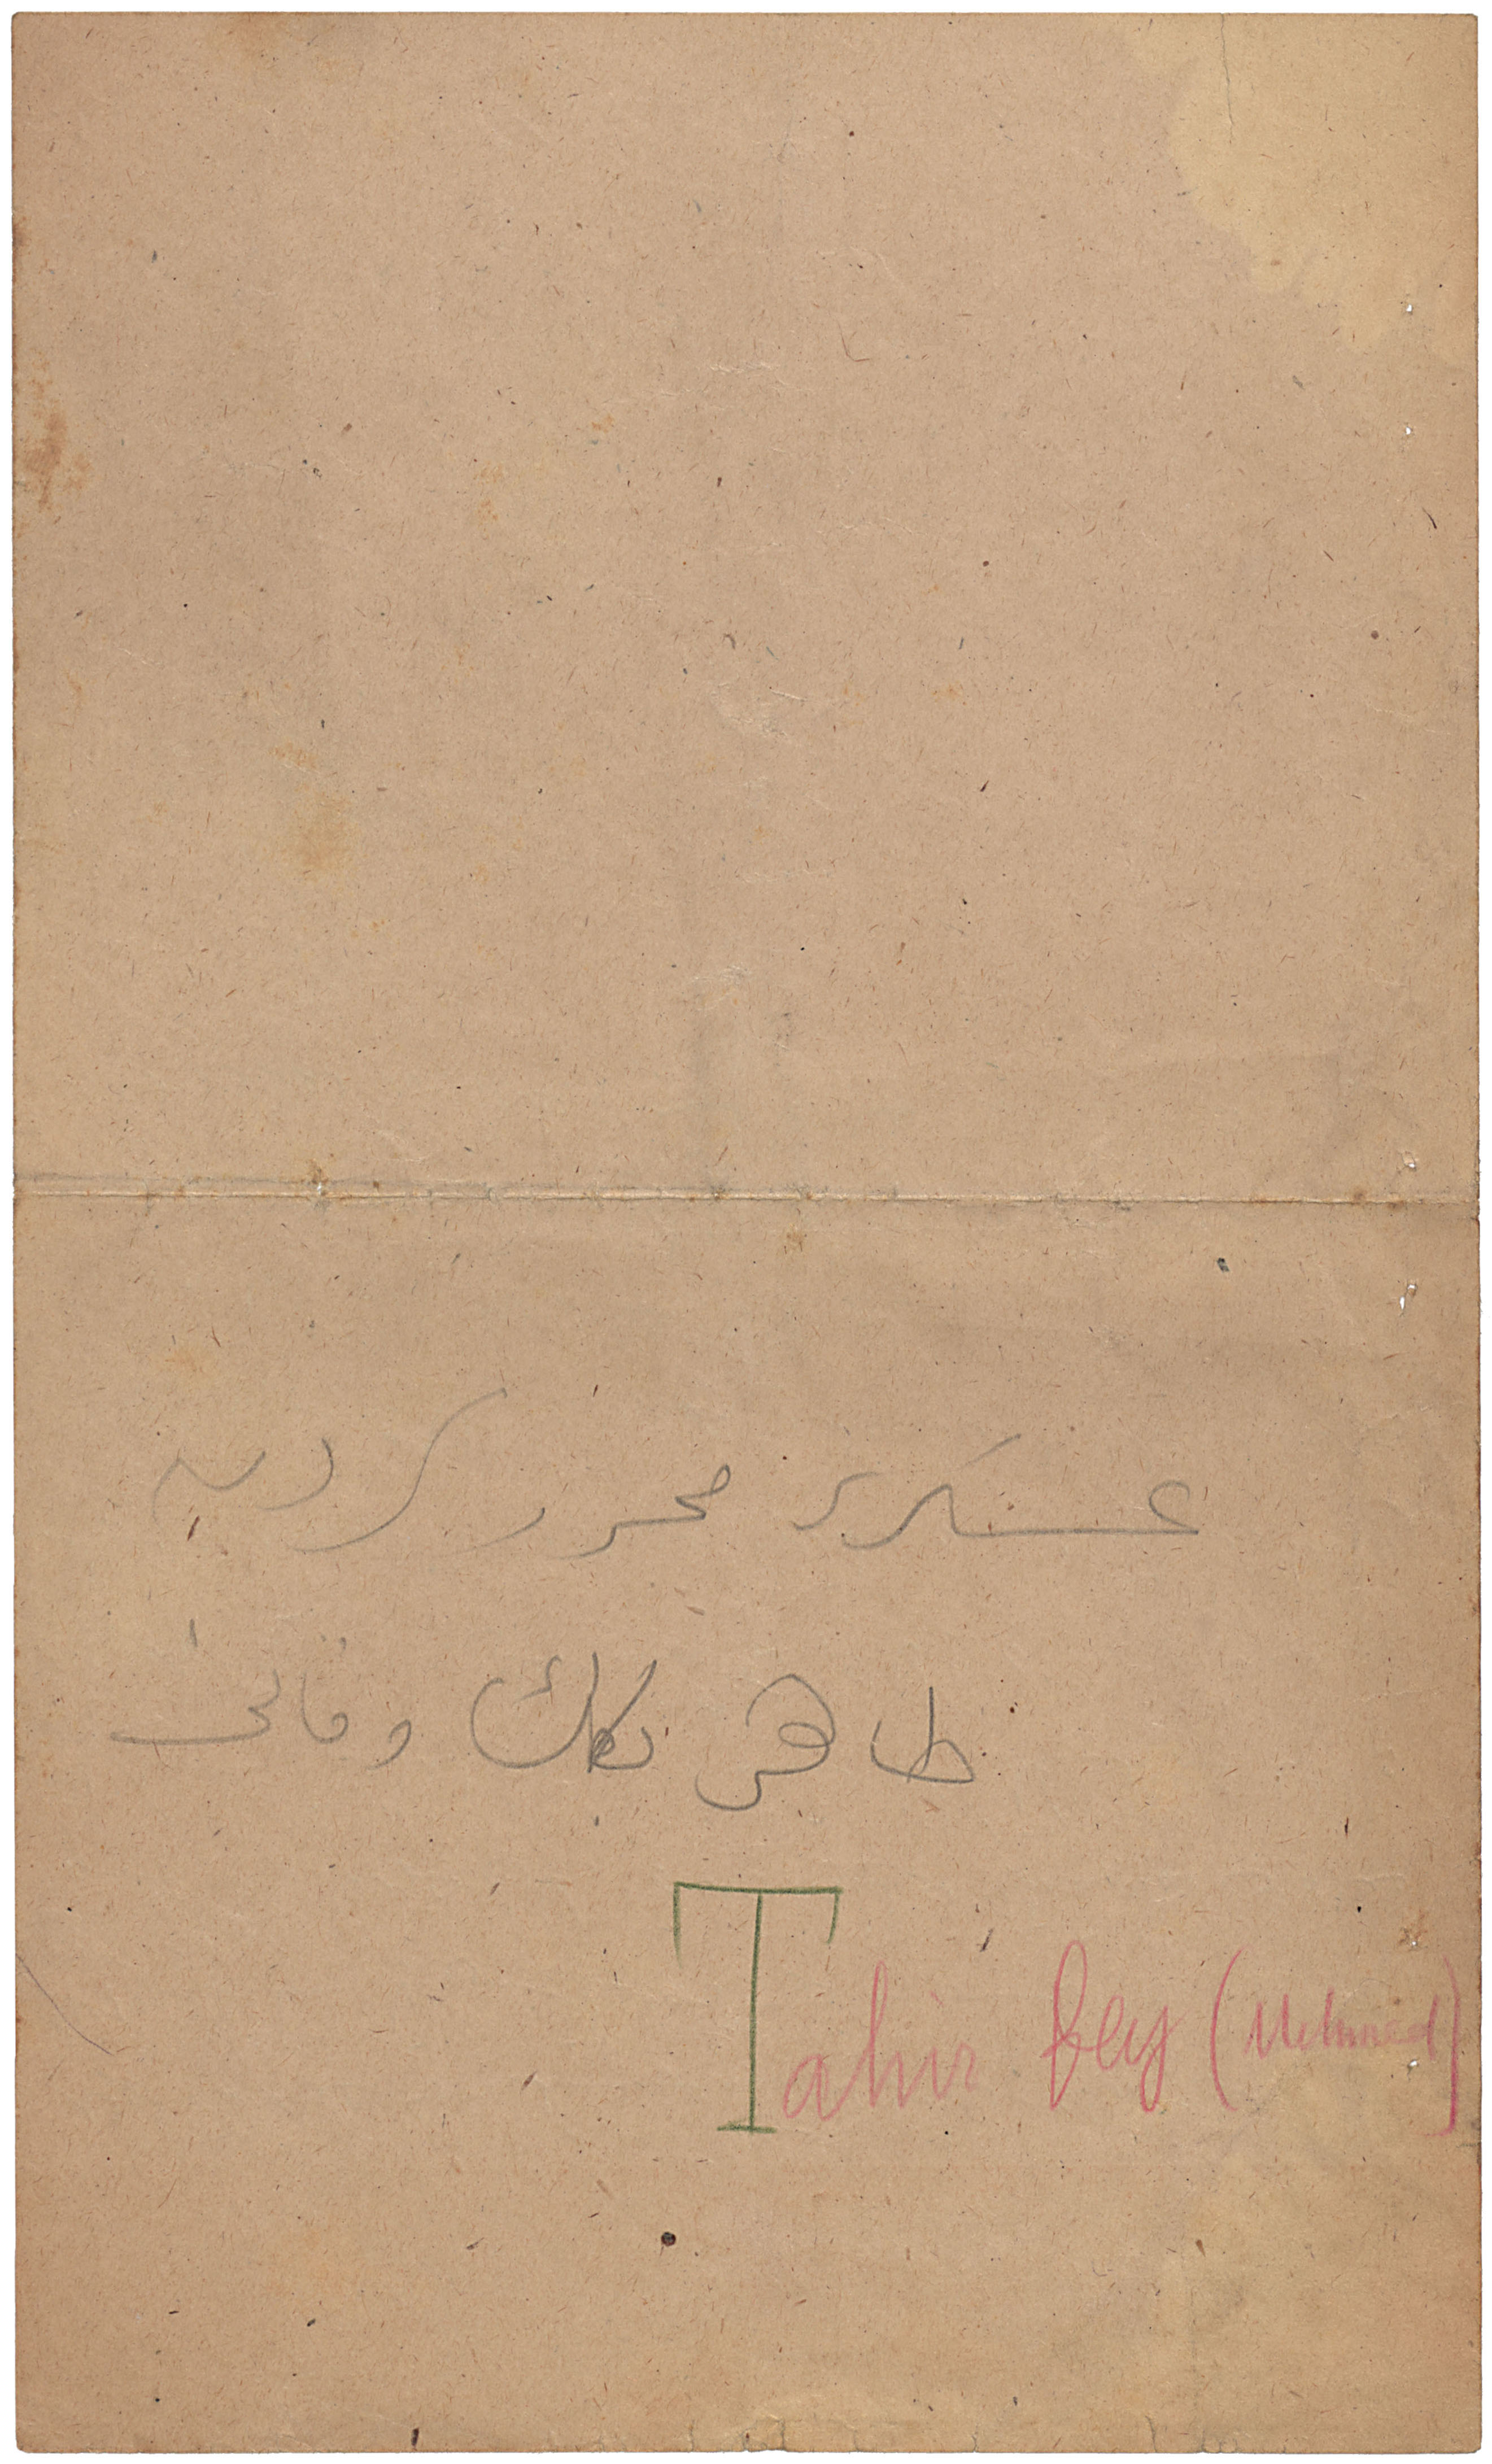 عسكری محررلردن
طاهر بكك وفاتی
Tahir Bey (Mehmed)